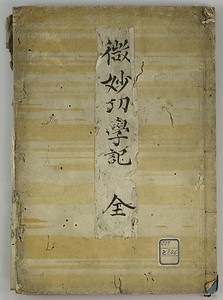 微妙功學記 全